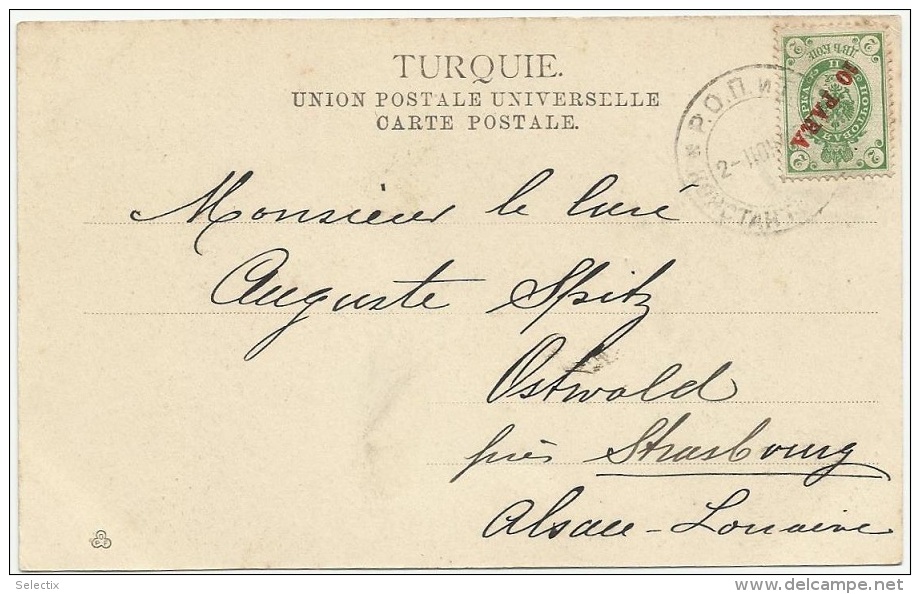 TURQUIE.
UNION POSTALE UNIVERSELLE
CARTE POSTALE.
Р.О.П. и
2-
КОНСТАН
2 ДВѢ КОП. 2
ПОЧТОВАЯ МАРКА
10 PARA
2 2
Monsieur le Curé
Auguste Spitz
Ostwald
près Strasbourg
Alsace-Lorraine
Selectix
delcampe.net